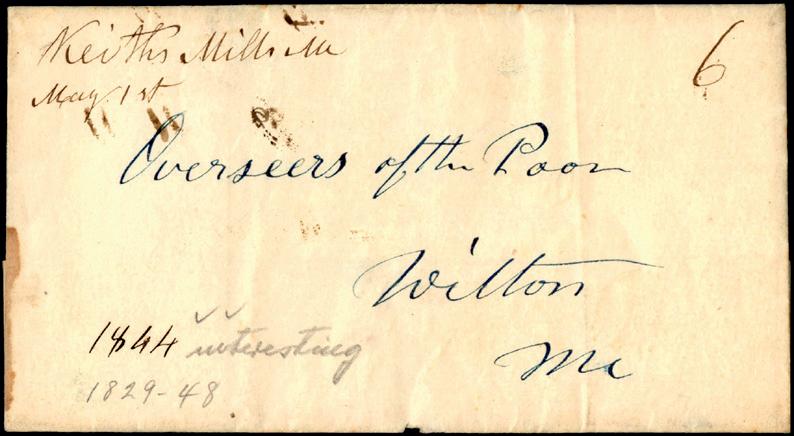 Keiths Mills Me
6
May 1st
Overseers of the Poor
Wilton
Me
1844 interesting
1829-48